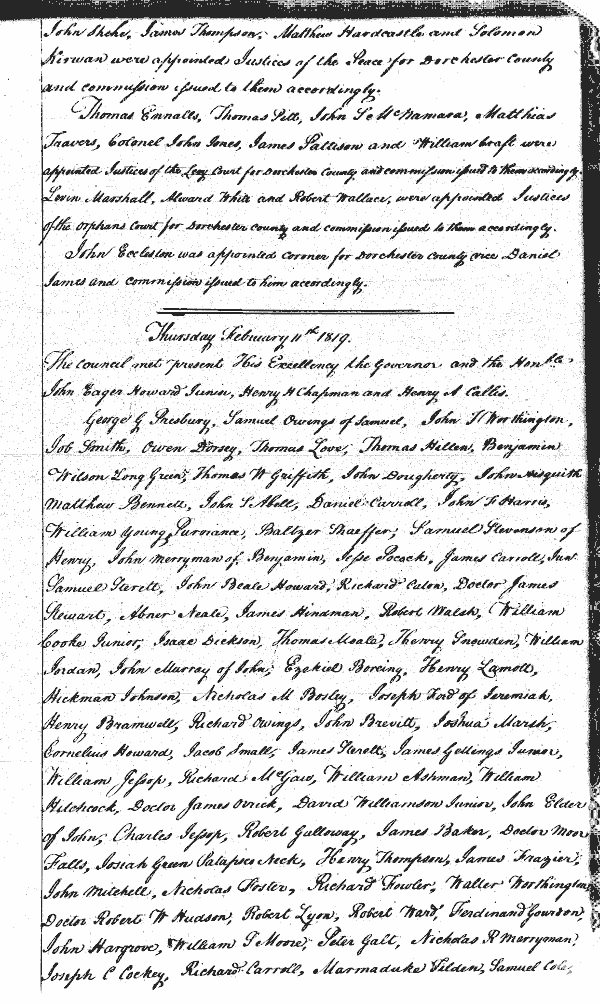 John Stehe, James Thompson, Matthew Hardcastle and Solomon
Kirwan were appointed Justices of the Peace for Dorchester County
and commission issued to them accordingly.
Thomas Ennalls, Thomas Pitt, John S McNamara, Matthias
Travers, Colonel John Jones, James Pattison and William Craft were
appointed Justices of the Levy Court for Dorchester County and commission issued to them accordingly.
Levin Marshall, Alward White and Robert Wallace, were appointed Justices
of the orphans Court for Dorchester County and commission issued to them accordingly.
John Eccleston was appointed coroner for Dorchester County vice Daniel
James and commission issued to him accordingly.
Thursday February 11th 1819.
The Council met present His Excellency the Governor and the Honble
John Eager Howard Junior, Henry H Chapman and Henry A Callis.
George G Presbury, Samuel Owings of Samuel, John T Worthington,
Job Smith, Owen Dorsey, Thomas Love, Thomas Hillen, Benjamin
Wilson Long Green, Thomas W Griffith, John Dougherty, John Aisquith
Matthew Bennett, John S Abell, Daniel Carroll, John F Harris,
William Young Purviance, Baltzer Shaeffer, Samuel Stevenson of
Henry, John Merryman of Benjamin, Jesse Pocock, James Carroll, Jun
Samuel Sterett, John Beale Howard, Richard Caton, Doctor James
Stewart, Abner Neale, James Hindman, Robert Walsh, William
Cooke Junior, Isaac Dickson, Thomas Moale, Thenry Snowden, William
Jordan, John Murray of John, Ezekiel Boreing, Henry Lamott,
Hickman Johnson, Nicholas M Bosley, Joseph Ford of Jeremiah,
Henry Bramwell, Richard Owings, John Brevitt, Joshua Marsh,
Cornelius Howard, Jacob Small, James Sterett, James Gittings Junior,
William Jessop, Richard McGaw, William Ashman, William
Hitchcock, Doctor James Orrick, David Williamson Junior, John Elder
of John, Charles Jessop, Robert Gulloway, James Baker, Doctor Moor
Falls, Josiah Green Patapsco Neck, Henry Thompson, James Frazier,
John Mitchell, Nicholas Foster, Richard Fowler, Walter Worthington
Doctor Robert W Hudson, Robert Lyon, Robert Ward, Ferdinand Gourdon,
John Hargrove, William T Moore, Peter Galt, Nicholas R Merryman,
Joseph C Cockey, Richard Carroll, Marmaduke Tilden, Samuel Cole,